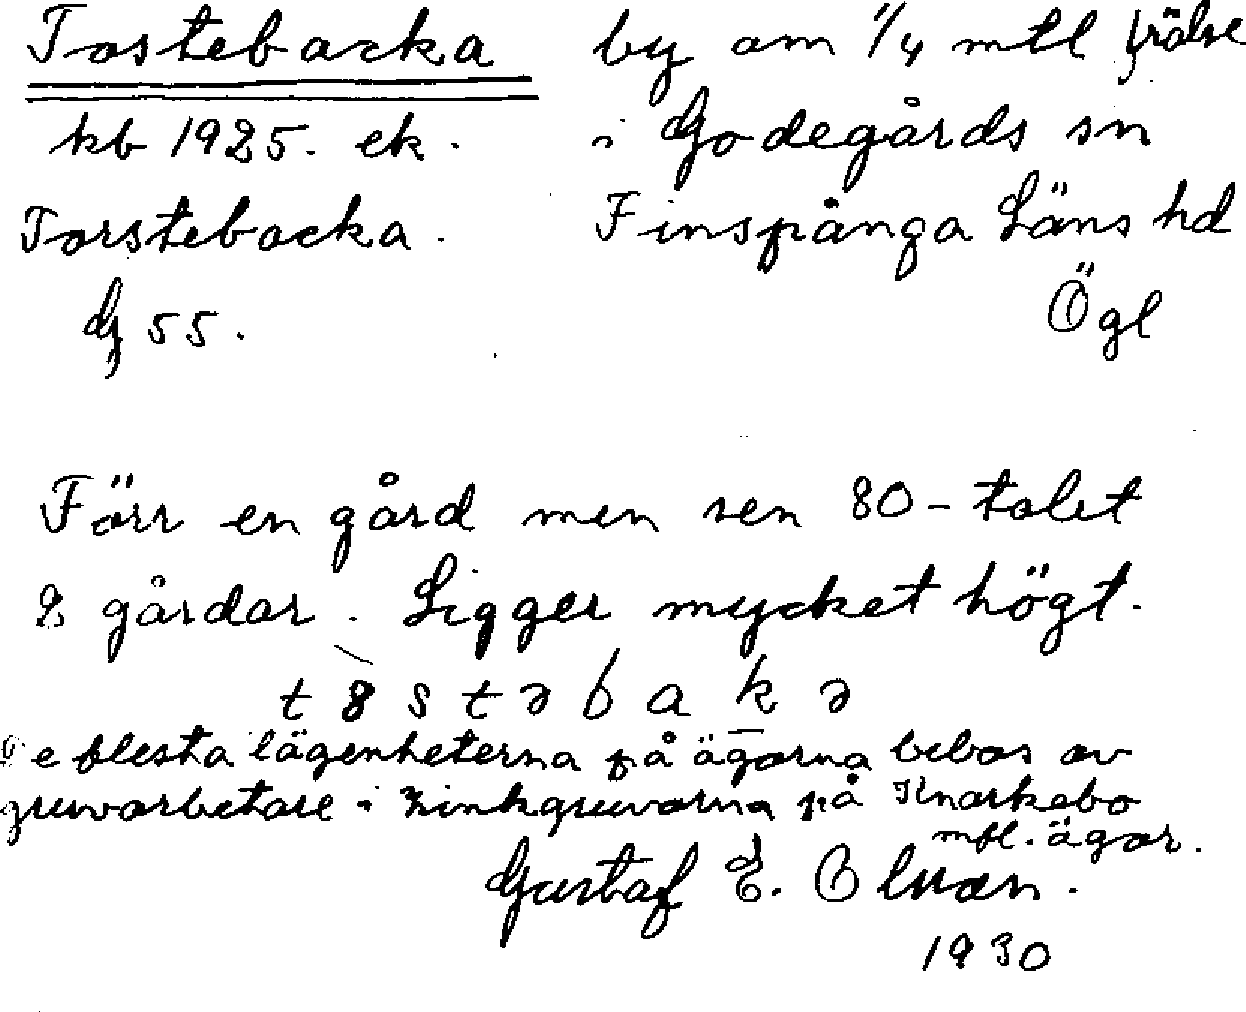 Tostebacka by om 1/4 mtl frälse
kb 1925. ek. i Godegårds sn
Torstebacka. Finspånga Läns hd
G 55. Ögl
Förr en gård men sen 80-talet
2 gårdar. Ligger mycket högt.
De flesta lägenheterna på ägorna bebos av
gruvarbetare i Zinkgruvorna på Knarkebo
mfl. ägor.
Gustaf E. Olsson.
1930